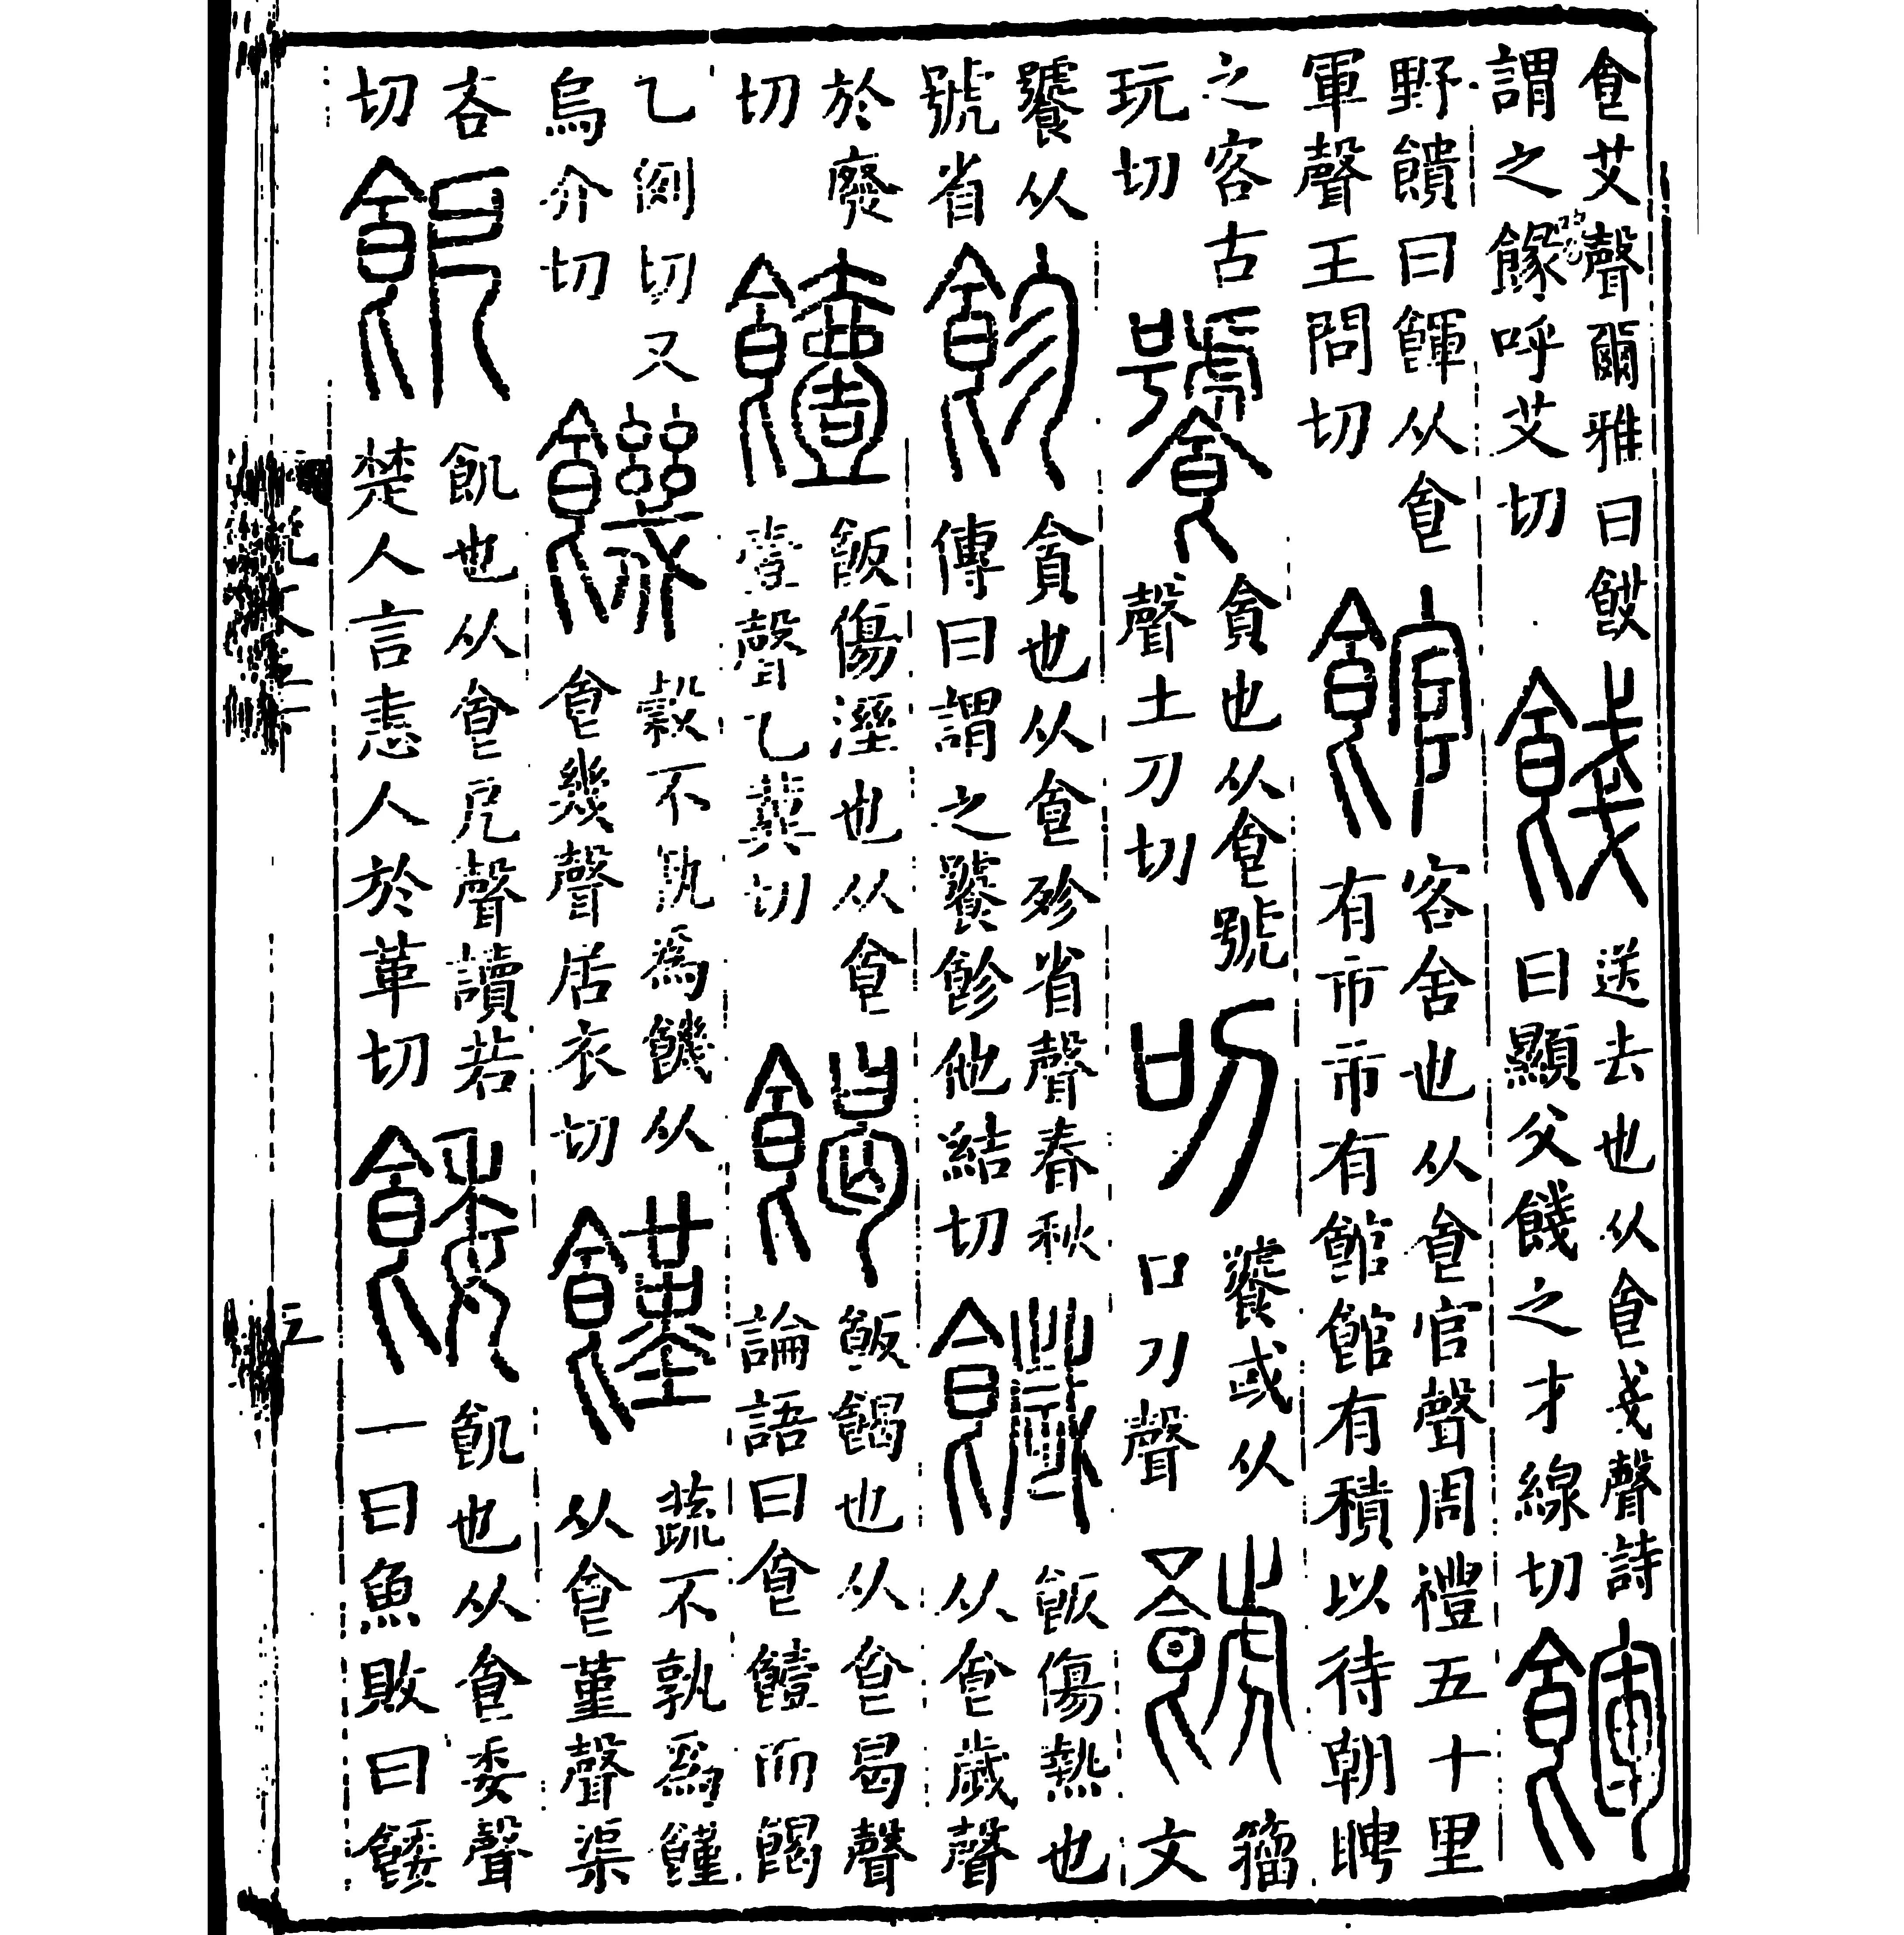 食艾聲爾雅曰餀謂之餯呼艾切 餞 送去也从食戔聲詩曰顯父餞之才線切 餫
野饋曰餫从食軍聲王問切 館 客舍也从食官聲周禮五十里有市市有館館有積以待朝聘
之客古玩切 饕 貪也从食號聲土刀切 叨 饕或从口刀聲 籒文
饕从號省 飻 貪也从食殄省聲春秋傳曰謂之饕飻他結切 饖 飯傷熱也从食歲聲
於廢切 饐 飯傷溼也从食壹聲乙冀切 餲 飯餲也从食曷聲論語曰食饐而餲
乙例切又烏介切 饑 穀不孰爲饑从食幾聲居衣切 饉 蔬不孰爲饉从食堇聲渠
吝切 䬣 飢也从食戹聲讀若楚人言恚人於革切 餧 飢也从食委聲一曰魚敗曰餧